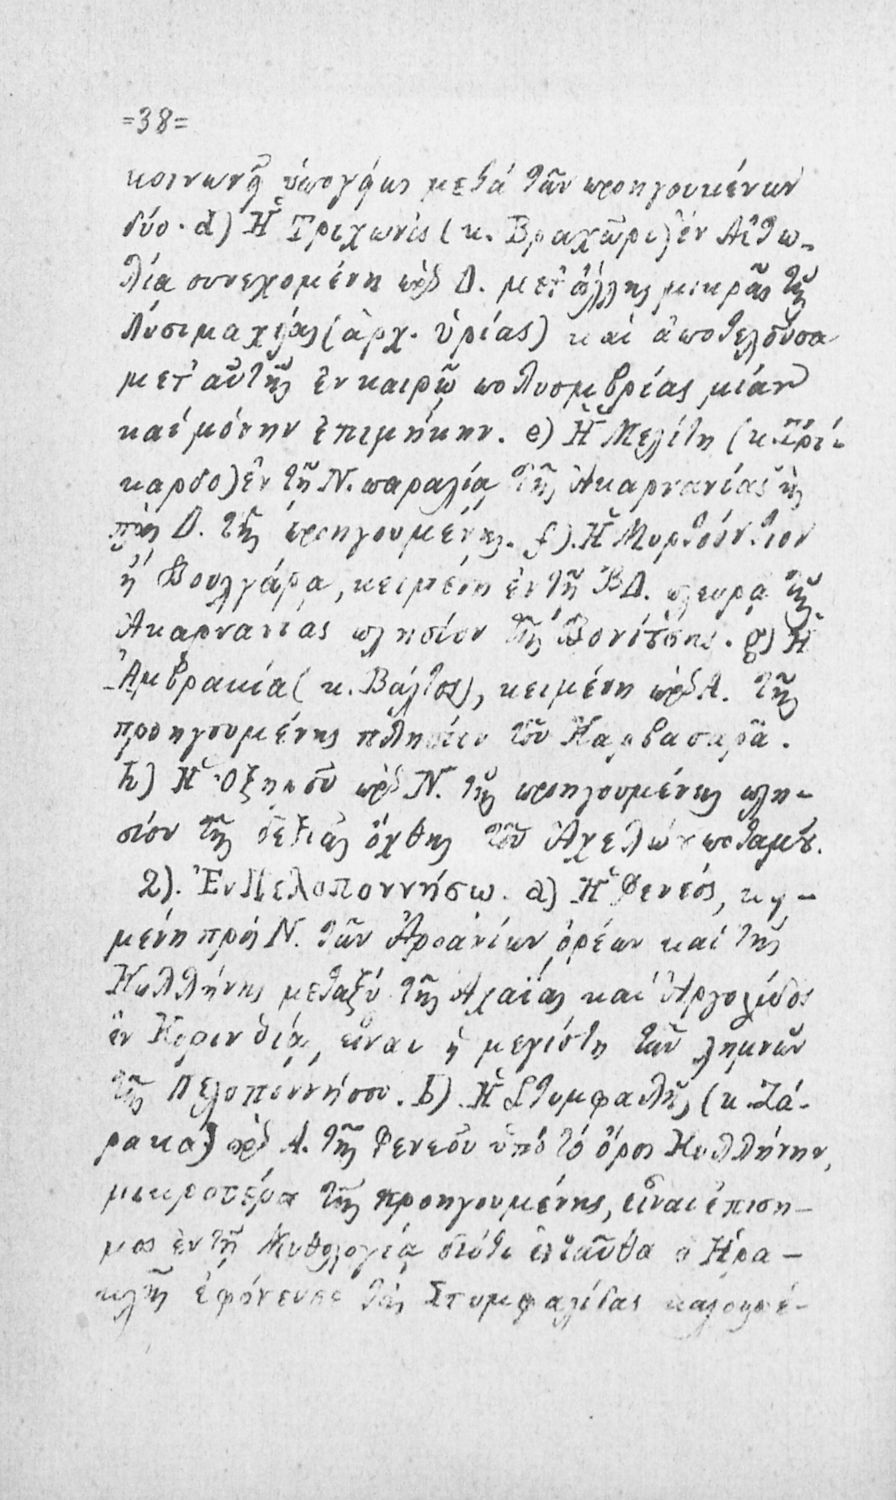 =38=
κοινωνεῖ ὑπογείως μετά τῶν προηγουμένων
δύο· d) Ἡ Τριχωνίς (κ. Βραχῶρι) ἐν Αἰτω-
λία συνεχομένη πρὸς Δ. μετ' ἄλλης μικρᾶς τῆς
Λυσιμαχίας (ἀρχ. ὑρίας) καί ἀποτελοῦσα
μετ' αὐτῆς ἐν καιρῷ πολυομβρίας μίαν
καί μόνην ἐπιμήκην. e) Ἡ Μελίτη (κ.
καρδο) ἐν τῇ Ν. παραλίᾳ τῆς Ἀκαρνανίας
πρός Δ. τῆς προηγουμένης. f) Ἡ Μυρτούντιον
ἤ Βουλγάρα, κειμένη ἐν τῇ ΒΔ. πλευρᾷ τῆς
Ἀκαρνανίας πλησίον τῆς Βονίτσης. g) Ἡ
Ἀμβρακία (κ. Βάλτος), κειμένη πρὸς Α. τῆς
προηγουμένης πλησίον τοῦ Καρβασαρᾶ.
h) Ἡ πρὸς Ν. τῆς προηγουμένης πλη-
σίον τῆς δεξιᾶς ὄχθης τοῦ Ἀχελώου ποταμοῦ.
2). Ἐν Πελοποννήσω. a) Ἡ Φενεός, κει-
μένη πρός Ν. τῶν Ἀροανίων ὀρέων καί τῆς
Κυλλήνης μεταξύ τῆς Ἀχαΐας καί Ἀργολίδος
ἐν Κορινθίᾳ, εἶναι ἡ μεγίστη τῶν λημνῶν
τῆς Πελοποννήσου. b) Ἡ Στυμφαλίς (κ. Ζά-
ρακα) πρὸς Α. τῆς Φενεοῦ ὑπό τό ὄρος Κυλλήνην,
μικροτέρα τῆς προηγουμένης, εἶναι ἐπίση-
μος ἐν τῇ Μυθολογίᾳ διότι ἐνταῦθα ὁ Ἡρα-
κλῆς ἐφόνευσε τάς Στυμφαλίδας καλουμέ-